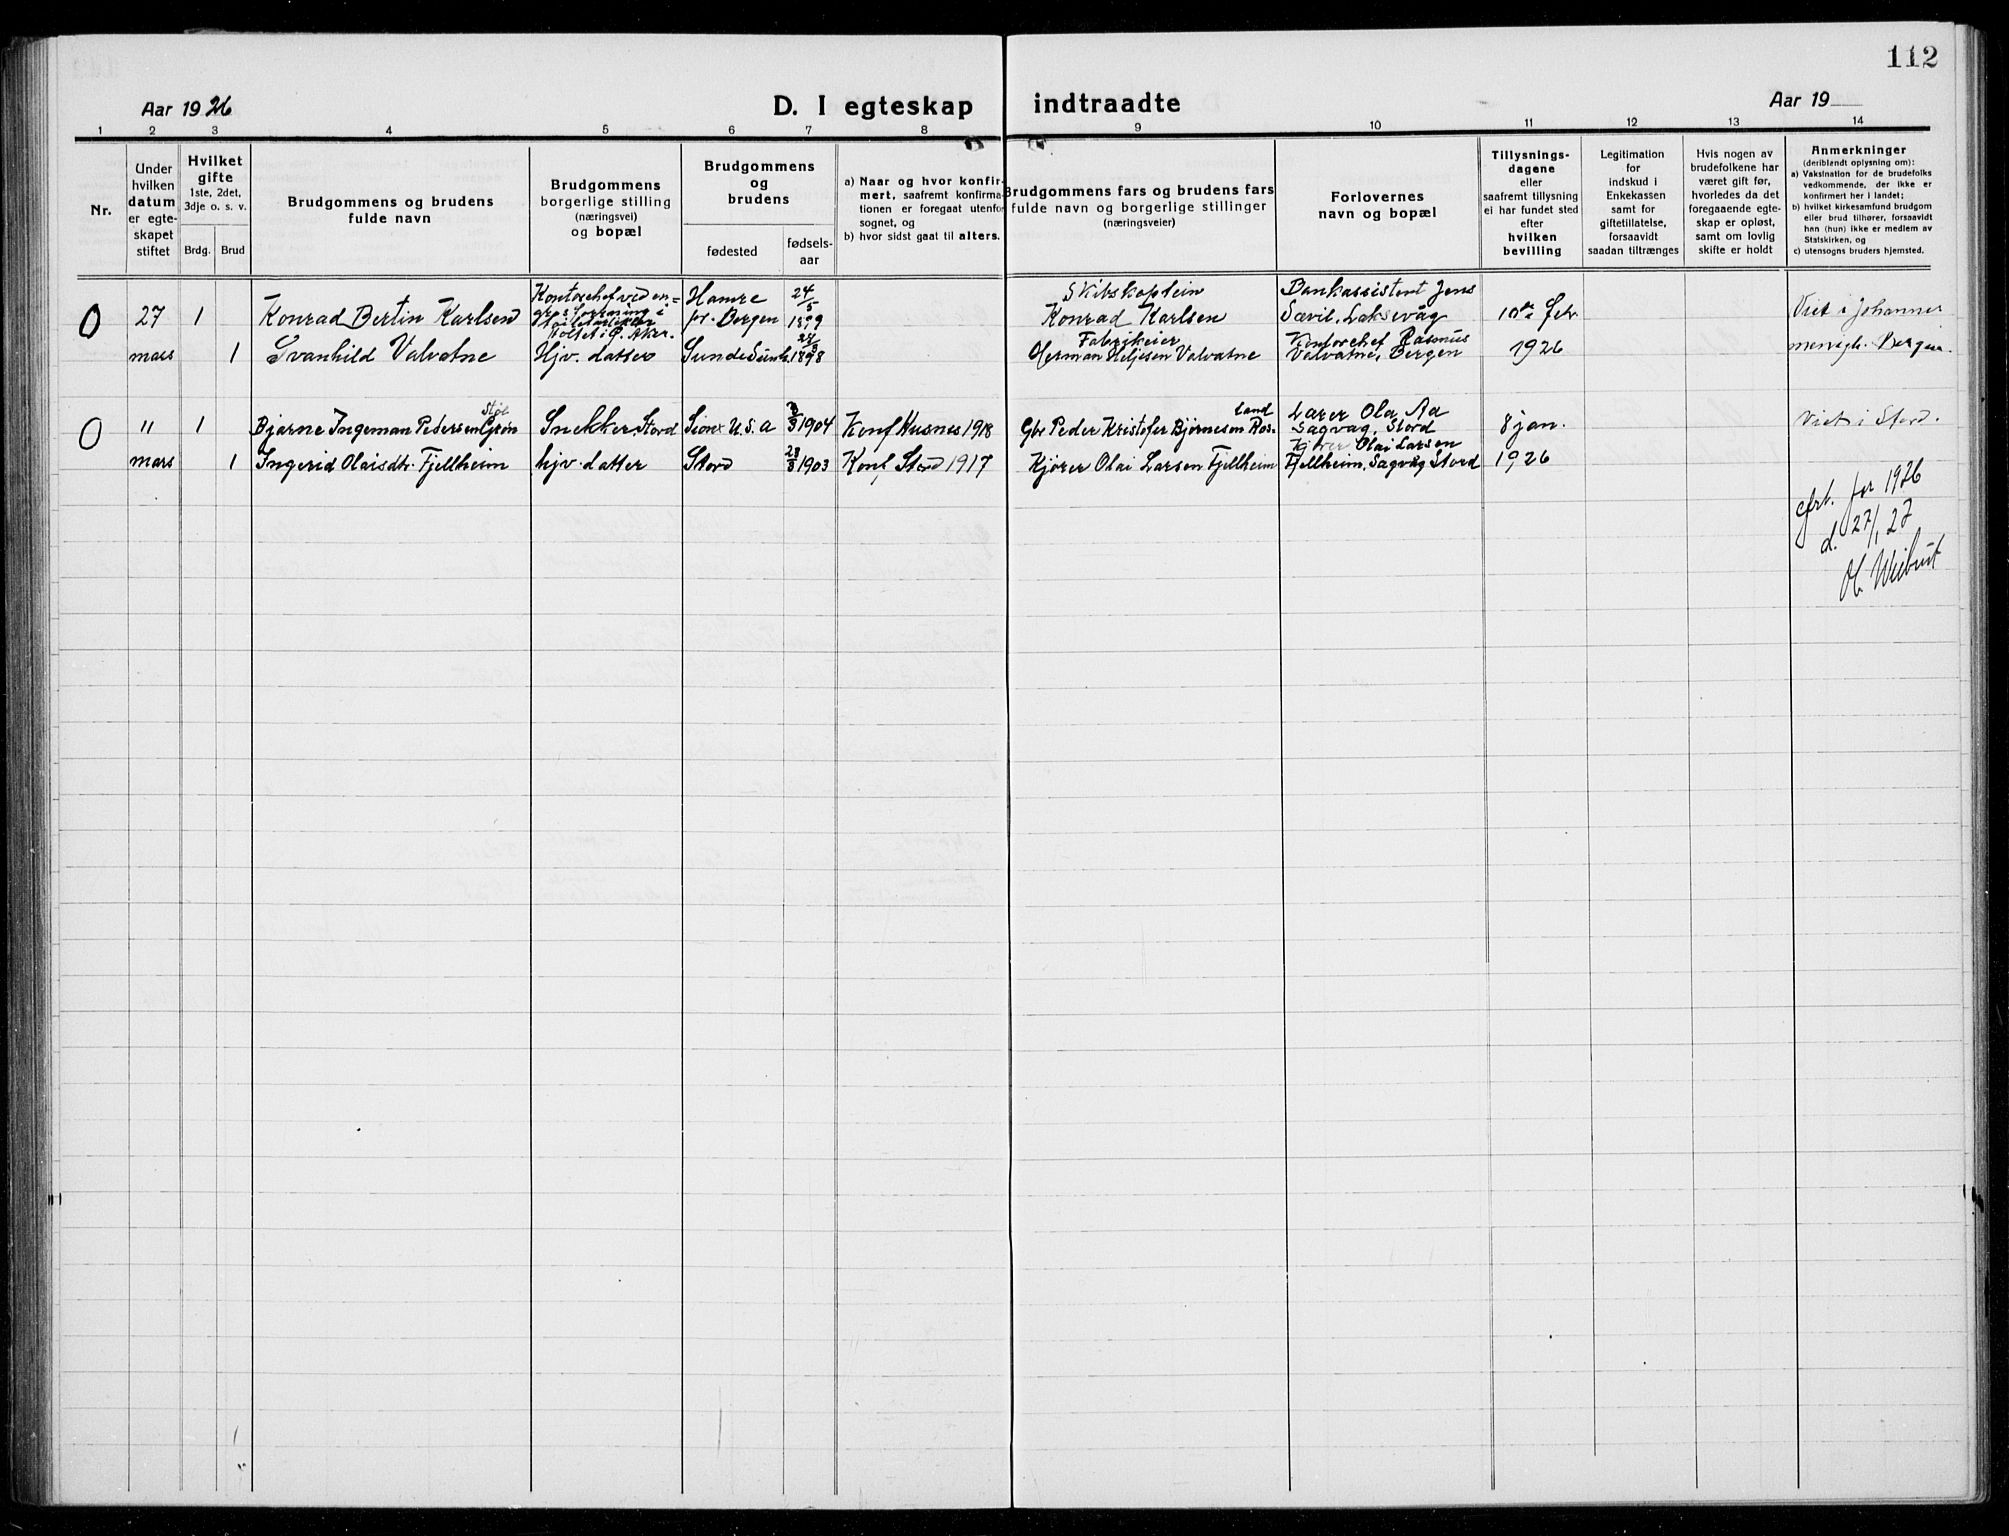 112
Aar 1926
D. I egteskap indtraadte
Aar 19
1 2 3 4 5 6 7 8 9 10 11 12 13 14
Nr.
Under
hvilken
datum
er egte-
skapet
stiftet
Hvilket
gifte
1ste, 2det,
3dje o. s. v.
Brdg. Brud
Brudgommens og brudens
fulde navn
Brudgommens
borgerlige stilling
(næringsvei)
og bopæl
Brudgommens
og
brudens
fødested
fødsels-
aar
a) Naar og hvor konfir-
mert, saafremt konfirma-
tionen er foregaat utenfor
sognet, og
b) hvor sidst gaat til alters.
Brudgommens fars og brudens fars
fulde navn og borgerlige stillinger
(næringsveier)
Forlovernes
navn og bopæl
Tillysnings-
dagene
eller
saafremt tillysning
ei har fundet sted
efter
hvilken
bevilling
Legitimation
for
indskud i
Enkekassen
samt for
giftetillatelse,
forsaavidt
saadan tiltrænges
Hvis nogen av
brudefolkene har
været gift før,
hvorledes da det
foregaaende egte-
skap er opløst,
samt om lovlig
skifte er holdt
Anmerkninger
(deriblendt oplysning om):
a) Vaksination for de brudefolks
vedkommende, der ikke er
konfirmert her i landet;
b) hvilket kirkesamfund brudgom
eller brud tilhører, forsaavidt
han (hun) ikke er medlem av
Statskirken, og
c) utensogns bruders hjemsted.
0 27 1 Konrad Bertin Karlsen
Kontorchef ved en-
gros forretning i
Hamre
for. Bergen
24/5
1899
Skibskaptein
Konrad Karlsen
Bankassistent Jens
Sævil, Laksevåg
10de febr.
Viet i Johannes
mars 1 Svanhild Valvatne
Hjv. datter
Sunde
1898
Fabrikeier
Herman Heljesen Valvatne
Kontorchef Rasmus
Valvatne, Bergen
1926
menigh. Bergen.
0 " 1 Bjarne Ingeman Pedersen Grøn
Støl
Snekker, Stord
U.S.A
1904
Konf Husnes 1918
Gbr Peder Kristofer Bjørneson Ros-
land
Lærer Ola Aa
Sagvåg, Stord
8 jan.
Viet i Stord.
mars 1 Ingerid Olaisdtr. Fjellheim
hjv. datter
Stord
1903
Konf Stord 1917
Kjører Olai Larsen Fjellheim
Kjører Olai Larsen
Fjellheim, Sagvåg Stord
1926
for 1926
d. 27/1 27